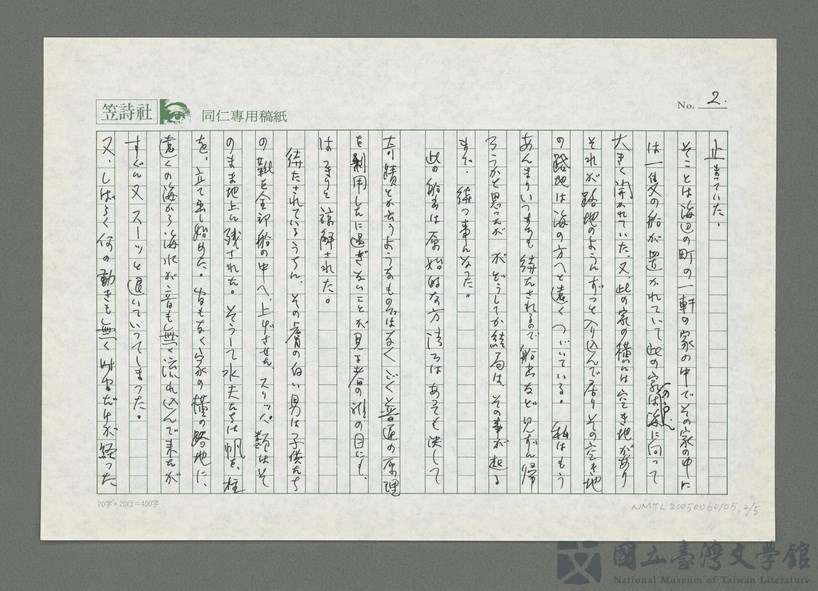 笠詩社 同仁專用稿紙
No. 2.
止まていた。
そことは海辺の町の一軒の家の中でその家の中に
は一隻の船が置かれていて此の家は海に向って
大きく開かれていた。又、此の家の横には空き地があり
それが路地のようにずっと入り込んで居りその空き地
の路地は海の方へと遠くつづいている。 私はもう
あんまりいつまでも待たされるので船出など見ずに帰
ろうかと思ったが がどうしてか結局は、その事が起る
まで、待つ事になった。
此の船出は原始的な方法ではあるも決して
奇蹟とか云うようなものではなくごく普通の原理
を利用したに過ぎないことが見る者の誰の目にも、
はっきりと諒解された。
待たされているうちに、その膚の白い男は子供たち
の靴を全部船の中へ、上げさせた。スリッパ類はそ
のまま地上に残された。そうして水夫たちは帆を、柱
を、立て出し始めた。 音もなく家の横の路地に、
遠くの海から海水が音も無く流れ込んで来たが
すぐに又スーッと退いていってしまった。
又、しばらく何の動きも無く時間だけが経った
20字×20行=400字
NMTL20050060105, 2/5
國立臺灣文學館
National Museum of Taiwan Literature